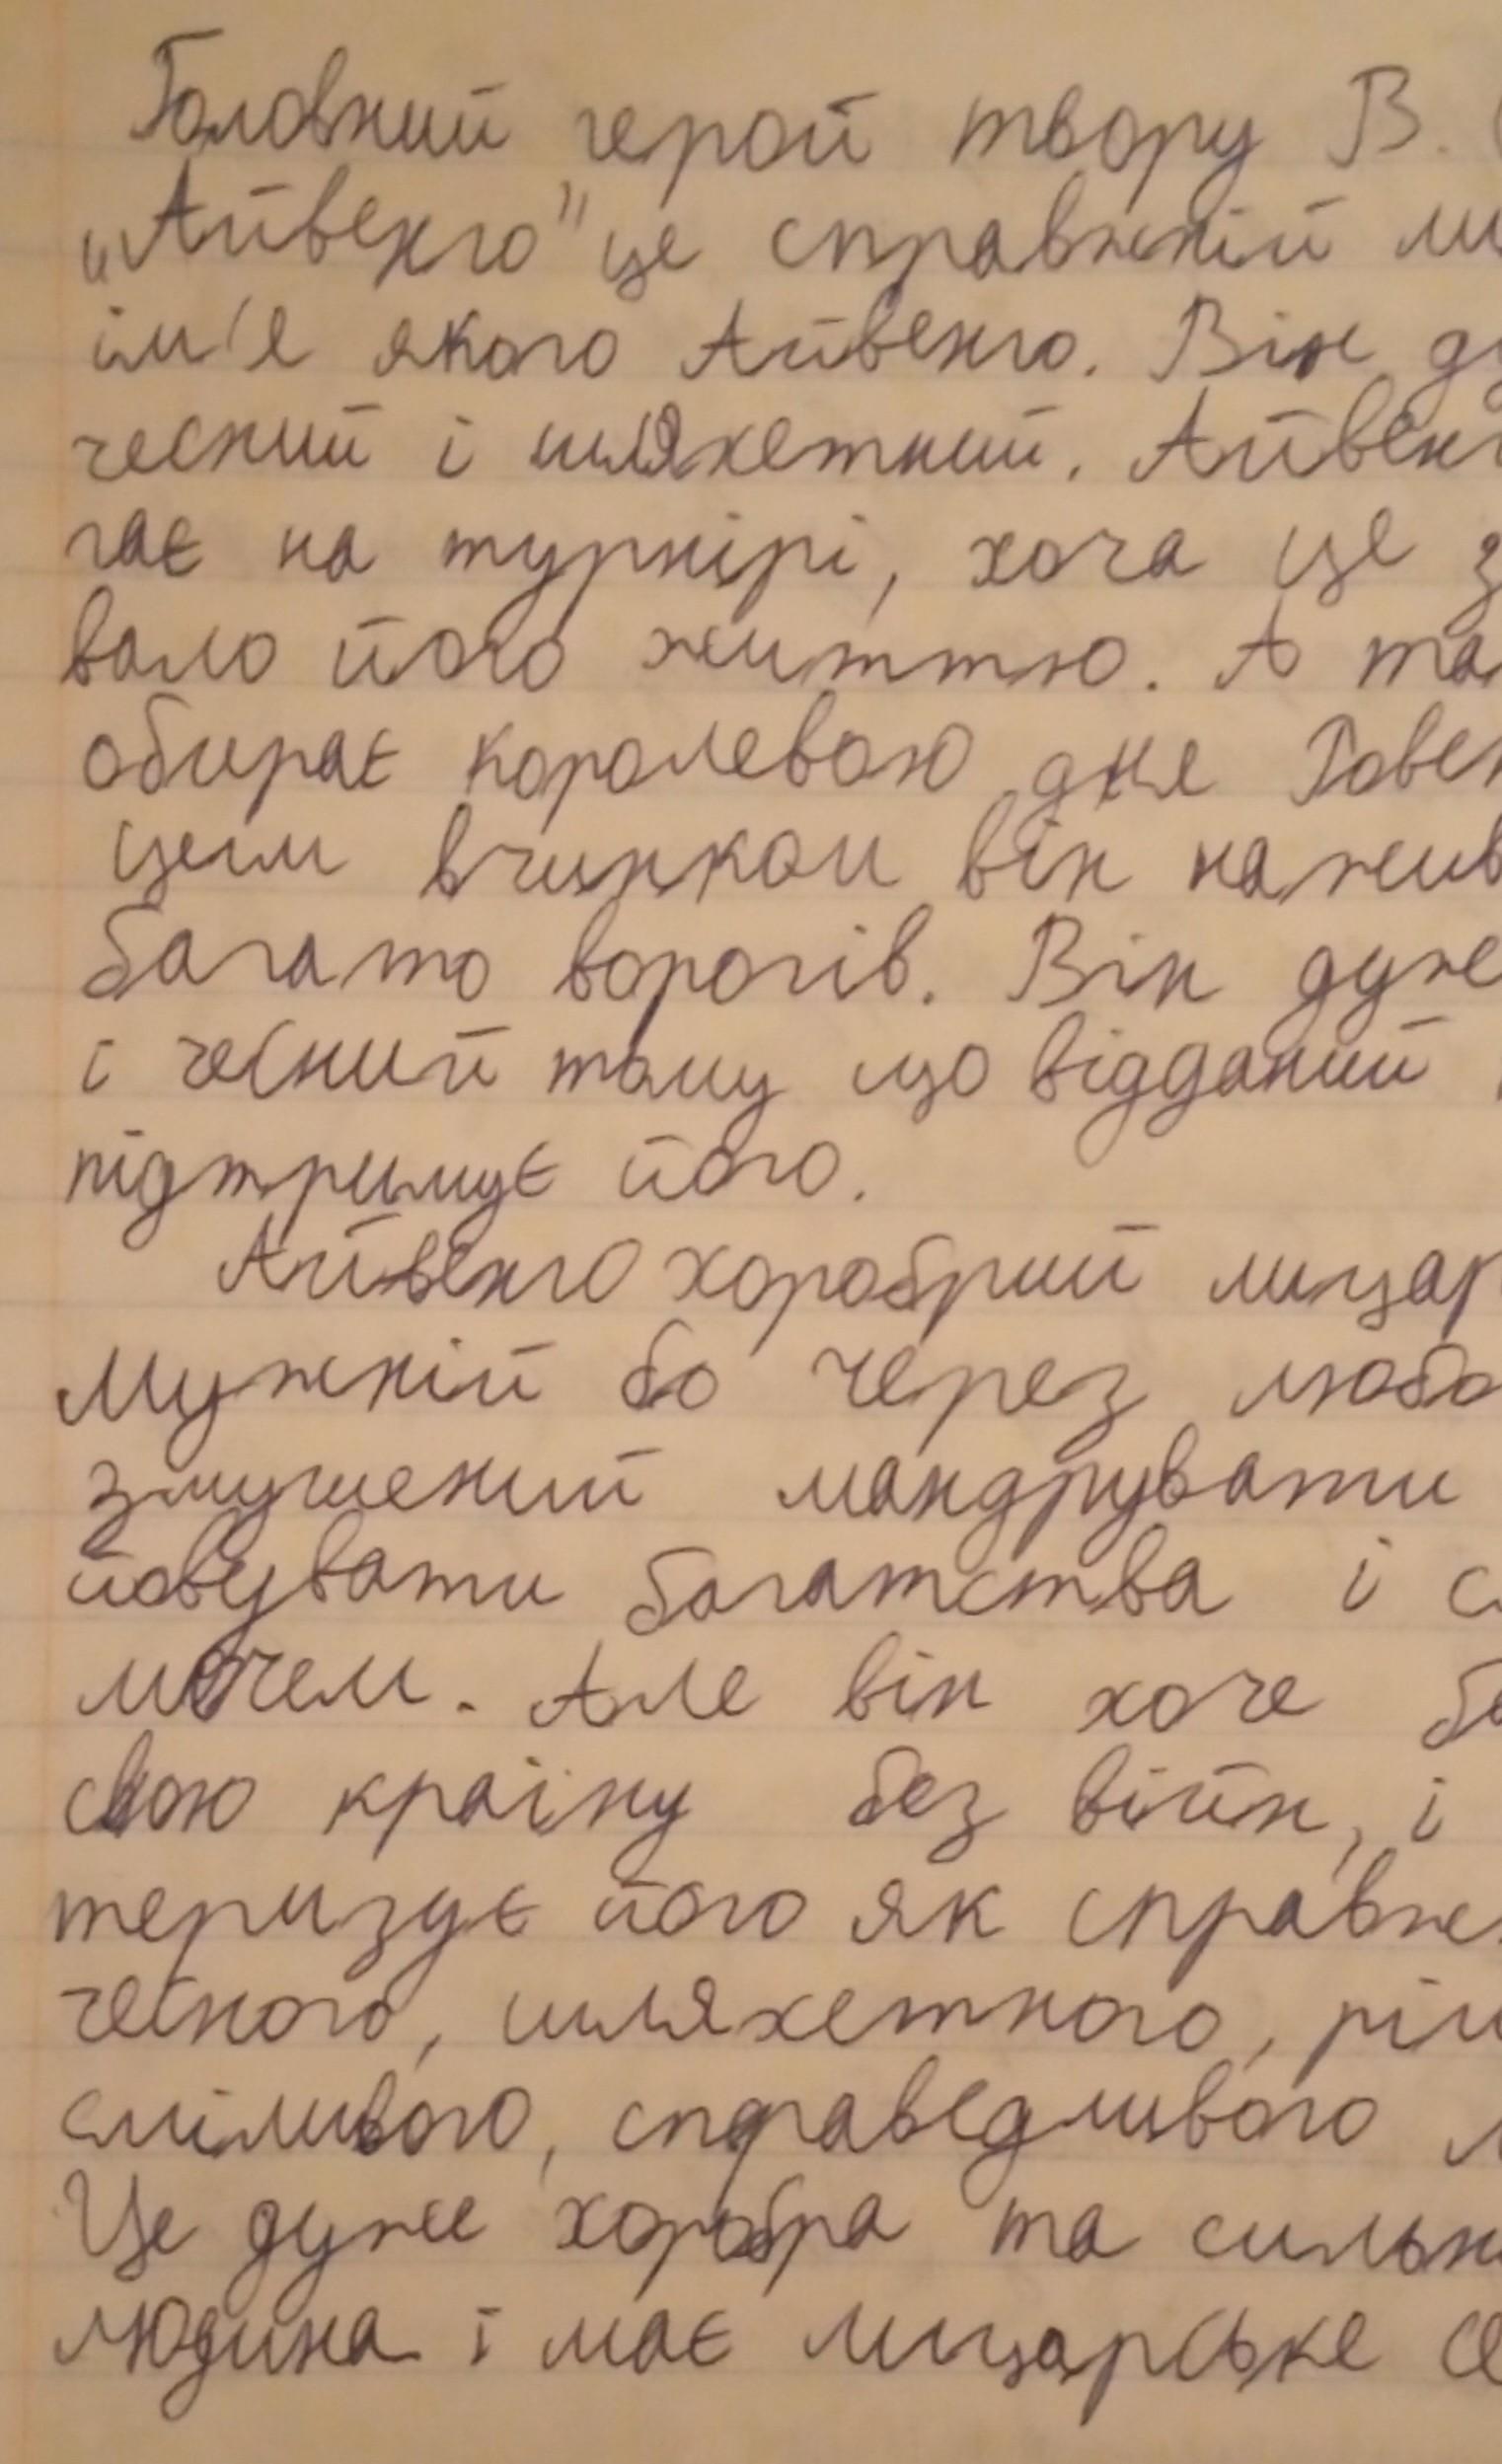 Головний герой твору В.
„Айвенго" це справжній
ім'я якого Айвенго. Він
чесний і шляхетний. Айвен
гає на турнірі, хоча це з
вало його життю. А та
обирає королевою дня Рове
цим вчинком він нажив
багато ворогів. Він дуже
і чесний тому що відданий
підтримує його.
Айвенго хоробрий лицар
мужній бо через любо
змушений мандрувати
багатства і с
мечем. Але він хоче
свою країну без війн, і
теризує його як справж
чесного, шляхетного, ріш
сміливого, справедливого
Це дуже хоробра та сильн
людина і має лицарське се